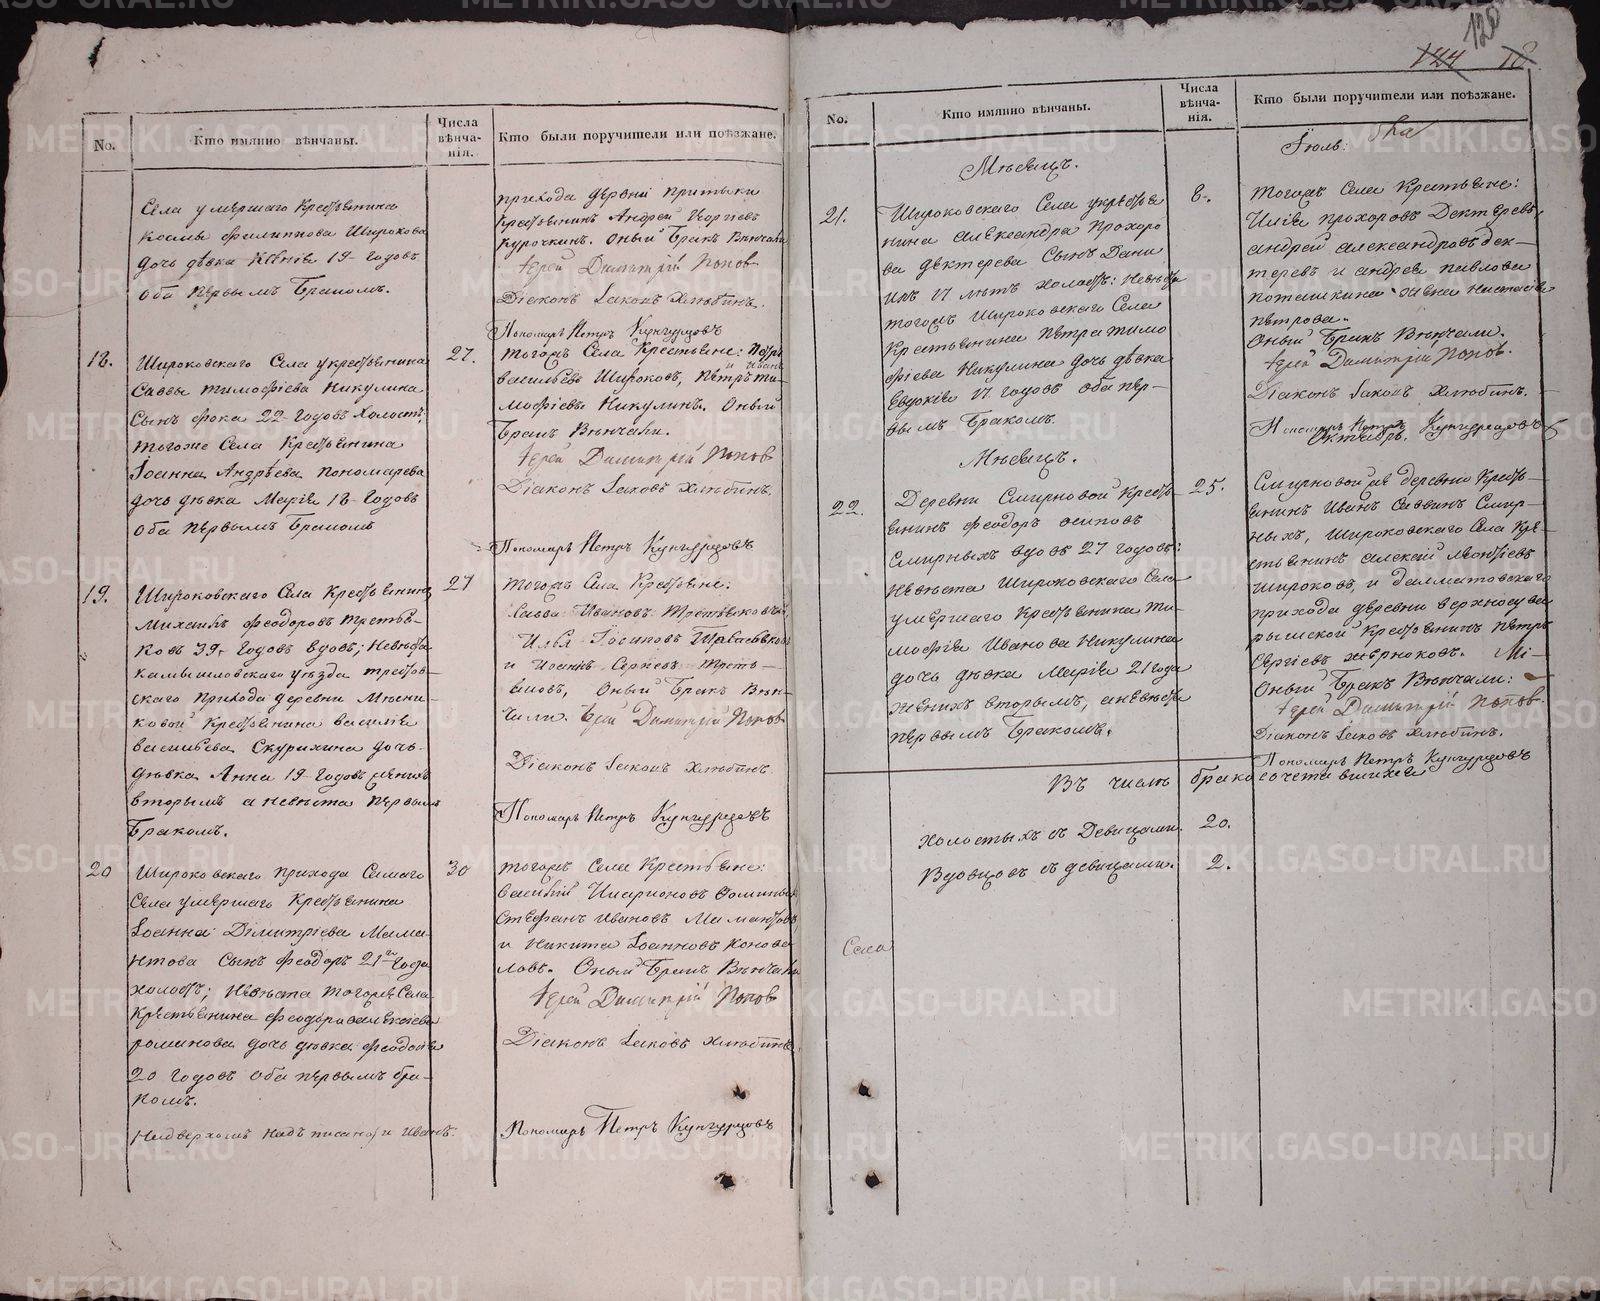 120
124
No.
Кто имянно вѣнчаны.
Числа вѣнча-нія.
Кто были поручители или поѣзжане.
Села умершаго Крестьянина
Космы Филиппова Широкова
дочь дѣвка Ксенія 19 годовъ
оба первымъ бракомъ.
прихода деревни Притыки
Крестьянинъ Андрей Георгіевъ
Курочкинъ. Оный бракъ Вѣнчали
Іерей Димитрій Поповъ
Діаконъ Іаковъ Хлюбинъ.
Пономарь Петръ Кунгурцовъ
18.
Широковскаго Села у крестьянина
Саввы Тимофіева Никулина
Сынъ Фока 22 годовъ Холостъ;
тогоже Села Крестьянина
Іоанна Андрѣева Пономарева
дочь дѣвка Марія 18 годовъ
оба первымъ бракомъ
27.
тогожъ Села Крестьяне: Петръ
и Иванъ
Васильевъ Широковъ, Петръ Ти-
мофіевъ Никулинъ. Оный
Бракъ Вѣнчали.
Іерей Димитрій Поповъ
Діаконъ Іаковъ Хлюбинъ.
Пономарь Петръ Кунгурцовъ
19.
Широковскаго Села Крестьянинъ
Михаилъ Феодоровъ Третья-
ковъ 39 годовъ вдовъ; Невѣста
Камышловскаго уѣзда
скаго прихода деревни Мясни-
ковой Крестьянина Василія
Васильева Скурихина дочь
дѣвка Анна 19 годовъ женихъ
вторымъ а невѣста первымъ
Бракомъ.
27
тогожъ Села Крестьяне:
Савва Ивановъ Третьяковъ,
Илья
и Іоаннъ Сергѣевъ Треть-
яковъ, Оный Бракъ Вѣн-
чали. Іерей Димитрій Поповъ
Діаконъ Іаковъ Хлюбинъ
Пономарь Петръ Кунгурцовъ
20
Широковскаго прихода Самаго
Села умершаго Крестьянина
Іоанна Димитріева Мама-
нтова Сынъ Феодоръ 21 года
холостъ; Невѣста тогоже Села
Крестьянина Феодора Алексіева
Романова дочь дѣвка Феодосія
20 годовъ оба первымъ бра-
комъ.
30
тогожъ Села Крестьяне:
Василій Иларионовъ Фоминыхъ
Стефанъ Ивановъ Мамантовъ
и Никита Іоанновъ Конова-
ловъ. Оный Бракъ Вѣнчали
Іерей Димитрій Поповъ
Діаконъ Іаковъ Хлюбинъ.
Надверхомъ надписано: и Иванъ.
Пономарь Петръ Кунгурцовъ
No.
Кто имянно вѣнчаны.
Числа вѣнча-нія.
Кто были поручители или поѣзжане.
Мѣсяцъ.
Іюль:
21.
Широковскаго Села у крестья-
нина Александра Прохоро-
ва Дектерева Сынъ Дани-
илъ 17 лѣтъ холостъ: Невѣста
тогожъ Широковскаго Села
Крестьянина Петра Тимо-
фіева Никулина дочь дѣвка
Евдокія 17 годовъ оба пер-
вымъ Бракомъ.
8.
тогожъ Села Крестьяне:
Илія Прохоровъ Дектеревъ,
Андрей Александровъ Дек-
теревъ и Андрея Павлова
Поташкина жена Настасія
Петрова.
Оный Бракъ Вѣнчали.
Іерей Димитрій Поповъ.
Діаконъ Іаковъ Хлюбинъ.
Пономарь Петръ Кунгурцовъ
Мѣсяцъ.
Октябрь.
22.
Деревни Смирновой Кресть-
янинъ Феодоръ Осиповъ
Смирныхъ вдовъ 27 годовъ:
Невѣста Широковскаго Села
умершаго Крестьянина Ти-
мофія Иванова Никулина
дочь дѣвка Марія 21 года
женихъ вторымъ, а невѣста
первымъ Бракомъ.
25.
Смирновой деревни Кресть-
янинъ Иванъ Саввинъ Смир-
ныхъ, Широковскаго Села Кре-
стьянинъ Алексій Леонтіевъ
Широковъ, и Далматовскаго
прихода деревни Верхносува-
рышской Крестьянинъ Петръ
Сергіевъ
Оный Бракъ Вѣнчали:
Іерей Димитрій Поповъ.
Діаконъ Іаковъ Хлюбинъ.
Пономарь Петръ Кунгурцовъ
Въ числѣ бракосочетавшихся
Холостыхъ съ Девицами. 20.
Вдовцовъ съ девицами. 2.
Села
METRIKI.GASO-URAL.RU